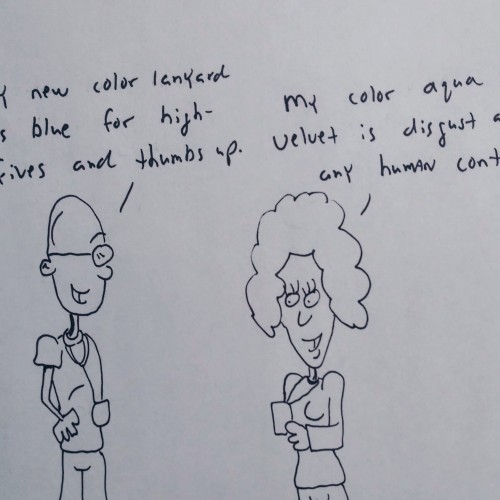 new color lanyard
blue for high-
and thumbs up.
My color aqua
velvet is disgust
any human